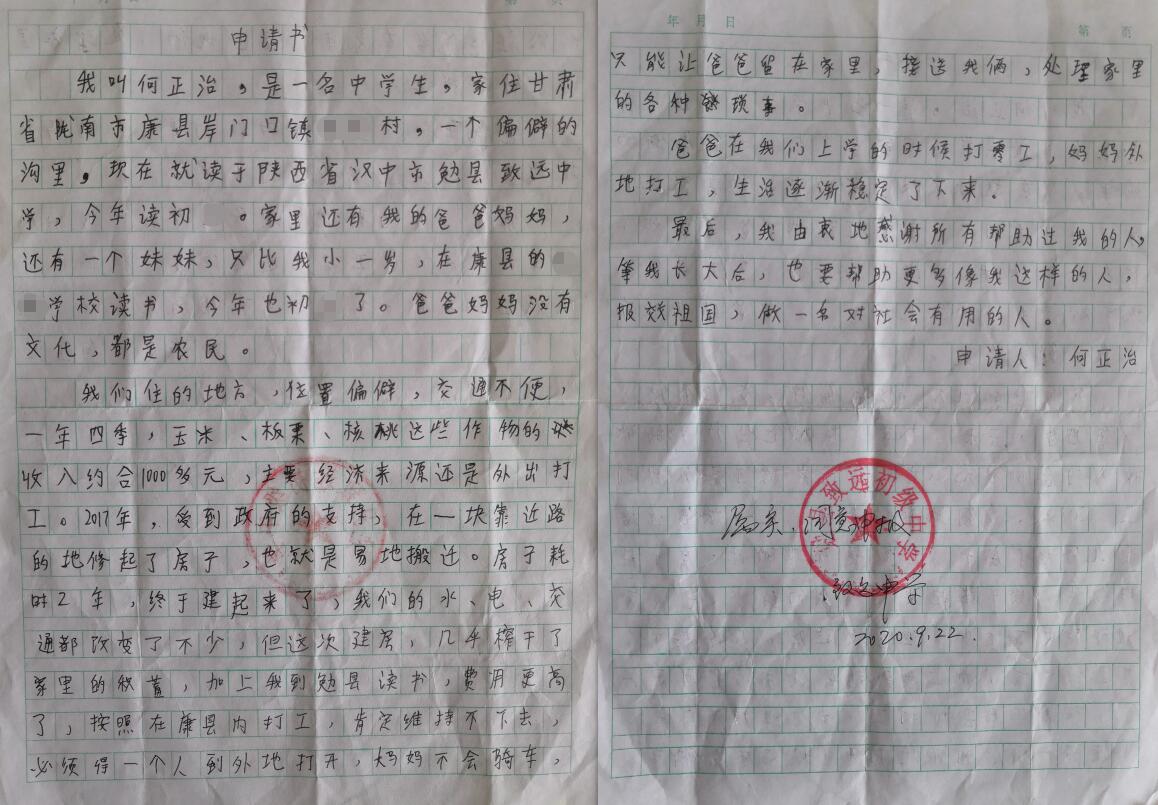 申请书
我叫何正治,是一名中学生,家住甘肃
省陇南市康县岸门口镇 村,一个偏僻的
沟里,现在就读于陕西省汉中市勉县致远中
学,今年读初 。家里还有我的爸爸妈妈,
还有一个妹妹,只比我小一岁,在康县的
学校读书,今年也初 了。爸爸妈妈没有
文化,都是农民。
我们住的地方,位置偏僻,交通不便,
一年四季,玉米、板栗、核桃这些作物的
收入约合1000多元,主要经济来源还是外出打
工。2017年,受到政府的支持,在一块靠近路
的地修起了房子,也就是易地搬迁。房子耗
时2年,终于建起来了,我们的水、电、交
通都改变了不少,但这次建房,几乎榨干了
家里的积蓄,加上我到勉县读书,费用更高
了,按照在康县内打工,肯定维持不下去,
必须得一个人到外地打开,妈妈不会骑车,
年 月 日
第 页
只能让爸爸留在家里,接送我俩,处理家里
的各种琐事。
爸爸在我们上学的时候打零工,妈妈外
地打工,生活逐渐稳定了下来。
最后,我由衷地感谢所有帮助过我的人,
等我长大后,也要帮助更多像我这样的人,
报效祖国,做一名对社会有用的人。
申请人:何正治
属实.同意申报
致远初级中学
致远中学
2020.9.22.